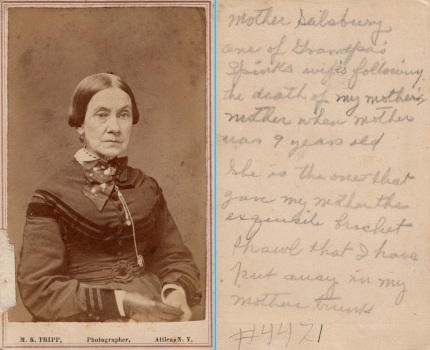 M. K. TRIPP, Photographer, Attica, N. Y.
Mother Salsbury
one of Grandpa's
Spinks wifes following
the death of my mother's
mother when mother
was 9 years old
She is the one that
gave my mother the
exquisite brochet
shawl that I have
put away in my
mothers trunk
#4471